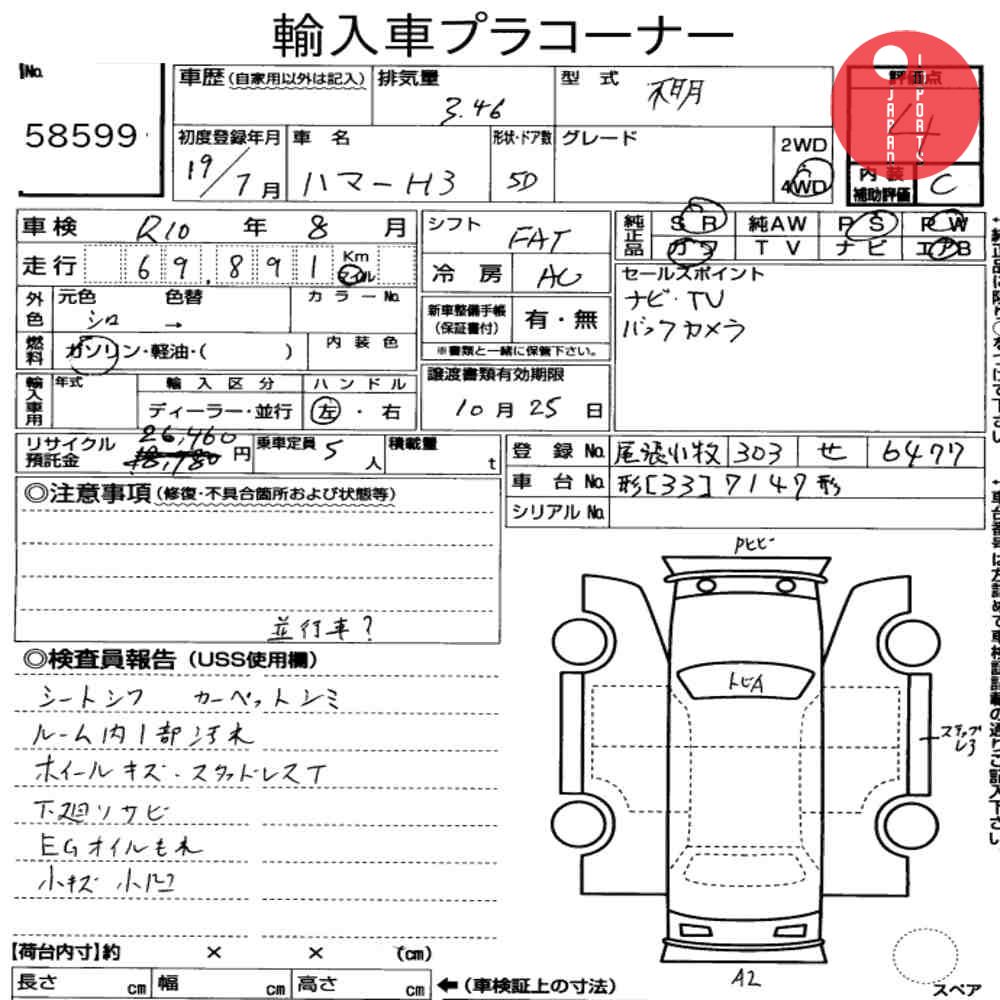 輸入車プラコーナー
No.
58599
車歴(自家用以外は記入)
排気量
3.46
型式
不明
評価点
4
JAPAN
IMPORTS
初度登録年月
19/7月
車名
ハマーH3
形状・ドア数
5D
グレード
2WD
4WD
内装
補助評価
C
車検 R10年8月
走行 69,891 Km マイル
シフト
FAT
冷房
AC
純正品
SR 純AW PS PW
カワ TV ナビ エアB
外色
元色 色替 カラーNo.
シロ →
燃料
ガソリン・軽油・( )
内装色
新車整備手帳
(保証書付)
有・無
※書類と一緒に保管下さい。
セールスポイント
ナビ・TV
バックカメラ
輸入車用
年式
輸入区分
ディーラー・並行
ハンドル
左・右
譲渡書類有効期限
10月25日
リサイクル
預託金
26,460
18,780円
乗車定員 5人
積載量 t
登録No. 尾張小牧 303 せ 6477
車台No. 形[33]7147形
シリアルNo.
◎注意事項(修復・不具合箇所および状態等)
並行車?
◎検査員報告(USS使用欄)
シートシワ カーペットシミ
ルーム内1部汚れ
ホイールキズ・スタッドレスT
下廻りサビ
EGオイルもれ
小キズ 小凹
PヒビA
トビA
ステップ
A2
スペア
【荷台内寸】約 × × (cm)
長さ cm 幅 cm 高さ cm
←(車検証上の寸法)